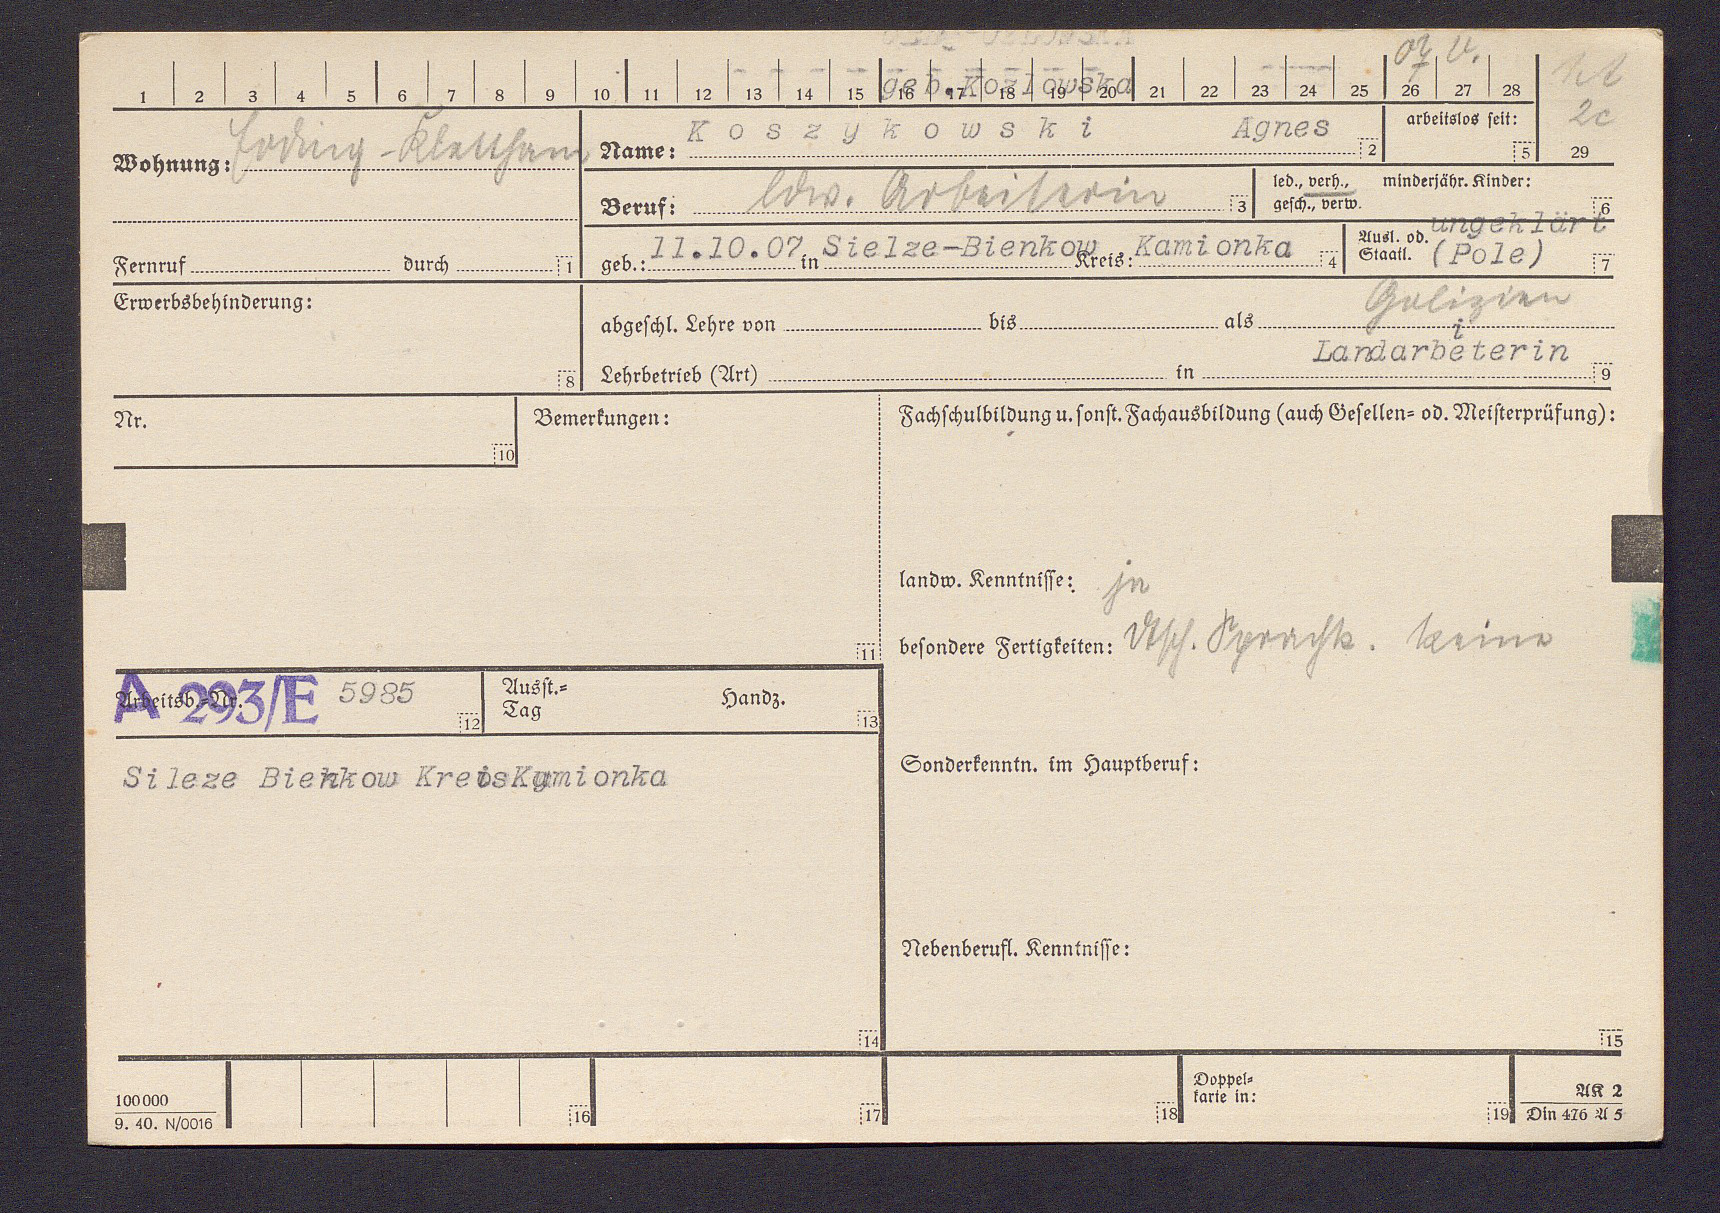 1 2 3 4 5 6 7 8 9 10 11 12 13 14 15 16 17 18 19 20 21 22 23 24 25 26 27 28
geb. Kozlowska
2c
29
Wohnung: Erding-Klettham
Name: Koszykowski Agnes 2
arbeitslos seit: 5
Beruf: ldw. Arbeiterin 3
led., verh., gesch., verw.
minderjähr. Kinder: 6
Fernruf durch 1
geb.: 11.10.07 in Sielze-Bienkow Kreis: Kamionka 4
Ausl. od. Staatl. ungeklärt (Pole) 7
Erwerbsbehinderung: 8
Galizien
abgeschl. Lehre von bis als
Landarbeiterin
Lehrbetrieb (Art) in 9
Nr. 10
Bemerkungen: 11
Fachschulbildung u. sonst. Fachausbildung (auch Gesellen- od. Meisterprüfung):
landw. Kenntnisse: ja
besondere Fertigkeiten: dtsch. Sprachk. keine
Arbeitsb.-Nr. A 293/E 5985 12
Ausst.-Tag Handz. 13
Sileze Bienkow Kreis Kamionka
Sonderkenntn. im Hauptberuf:
Nebenberufl. Kenntnisse:
14
15
100000
9. 40. N/0016
16
17
18
Doppel-
karte in: 19
AK 2
Din 476 A 5